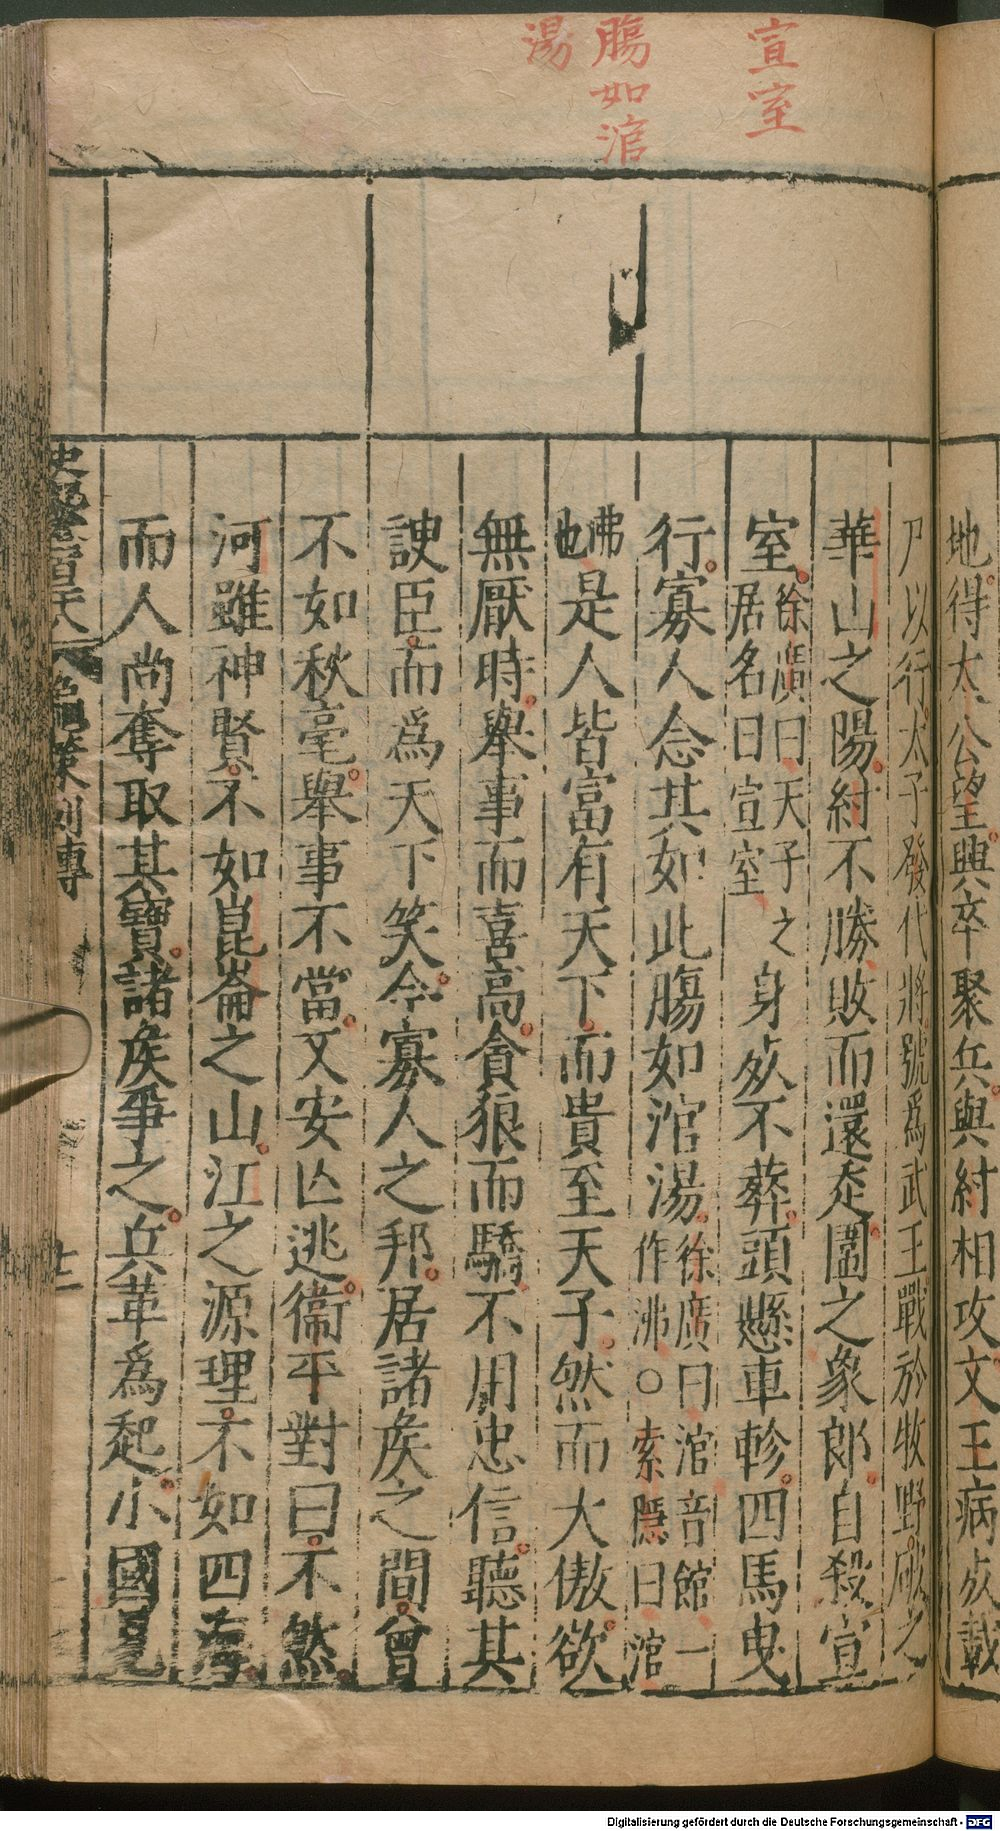 宣室
腸如涫
湯
地得太公望興卒聚兵與紂相攻文王病死載
尸以行太子發代將號爲武王戰於牧野破之
華山之陽紂不勝敗而還走圍之象郎自殺宣
室徐廣曰天子之居名曰宣室身死不葬頭懸車軫四馬曳
行寡人念其如此腸如涫湯徐廣曰涫音館一作沸○索隱曰涫
沸也是人皆富有天下而貴至天子然而大傲欲
無厭時舉事而喜高貪狼而驕不用忠信聽其
諛臣而爲天下笑今寡人之邦居諸侯之間曾
不如秋毫舉事不當又安亡逃衞平對曰不然
河雖神賢不如崑崙之山江之源理不如四海
而人尚奪取其寶諸侯爭之兵革爲起小國見
史記 龜策列傳
十二
Digitalisierung gefördert durch die Deutsche Forschungsgemeinschaft - DFG